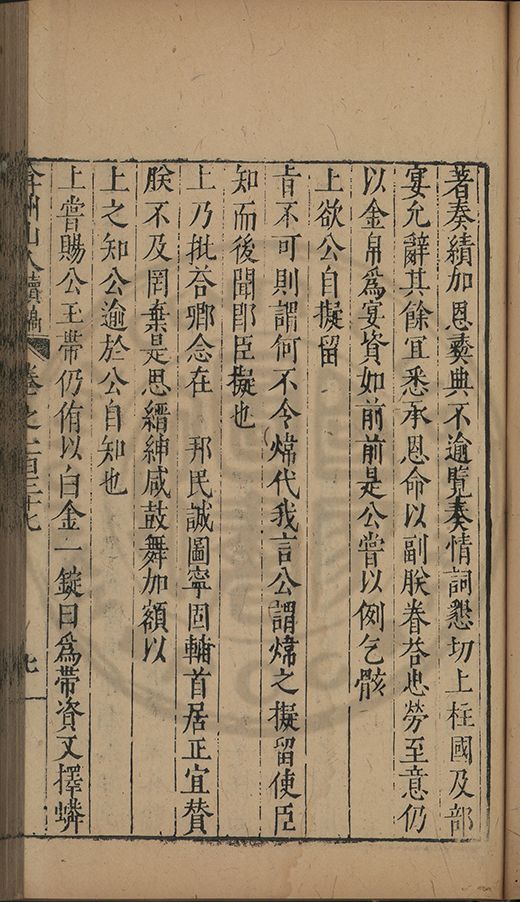 著奏績加恩彝典不逾覽奏情詞懇切上柱國及部
宴允辭其餘宜悉承恩命以副朕眷荅忠勞至意仍
以金帛為宴資如前前是公嘗以例乞骸
上欲公自擬留
旨不可則謂何不令煒代我言公謂煒之擬留使臣
知而後聞卽臣擬也
上乃批荅卿念在 邦民誠圖寧固輔首居正宜贊
朕不及罔棄是思縉紳咸鼓舞加額以
上之知公逾於公自知也
上嘗賜公玉帶仍侑以白金一錠曰為帶資又擇蟒
弇州山人續編 卷之一百三十七 七